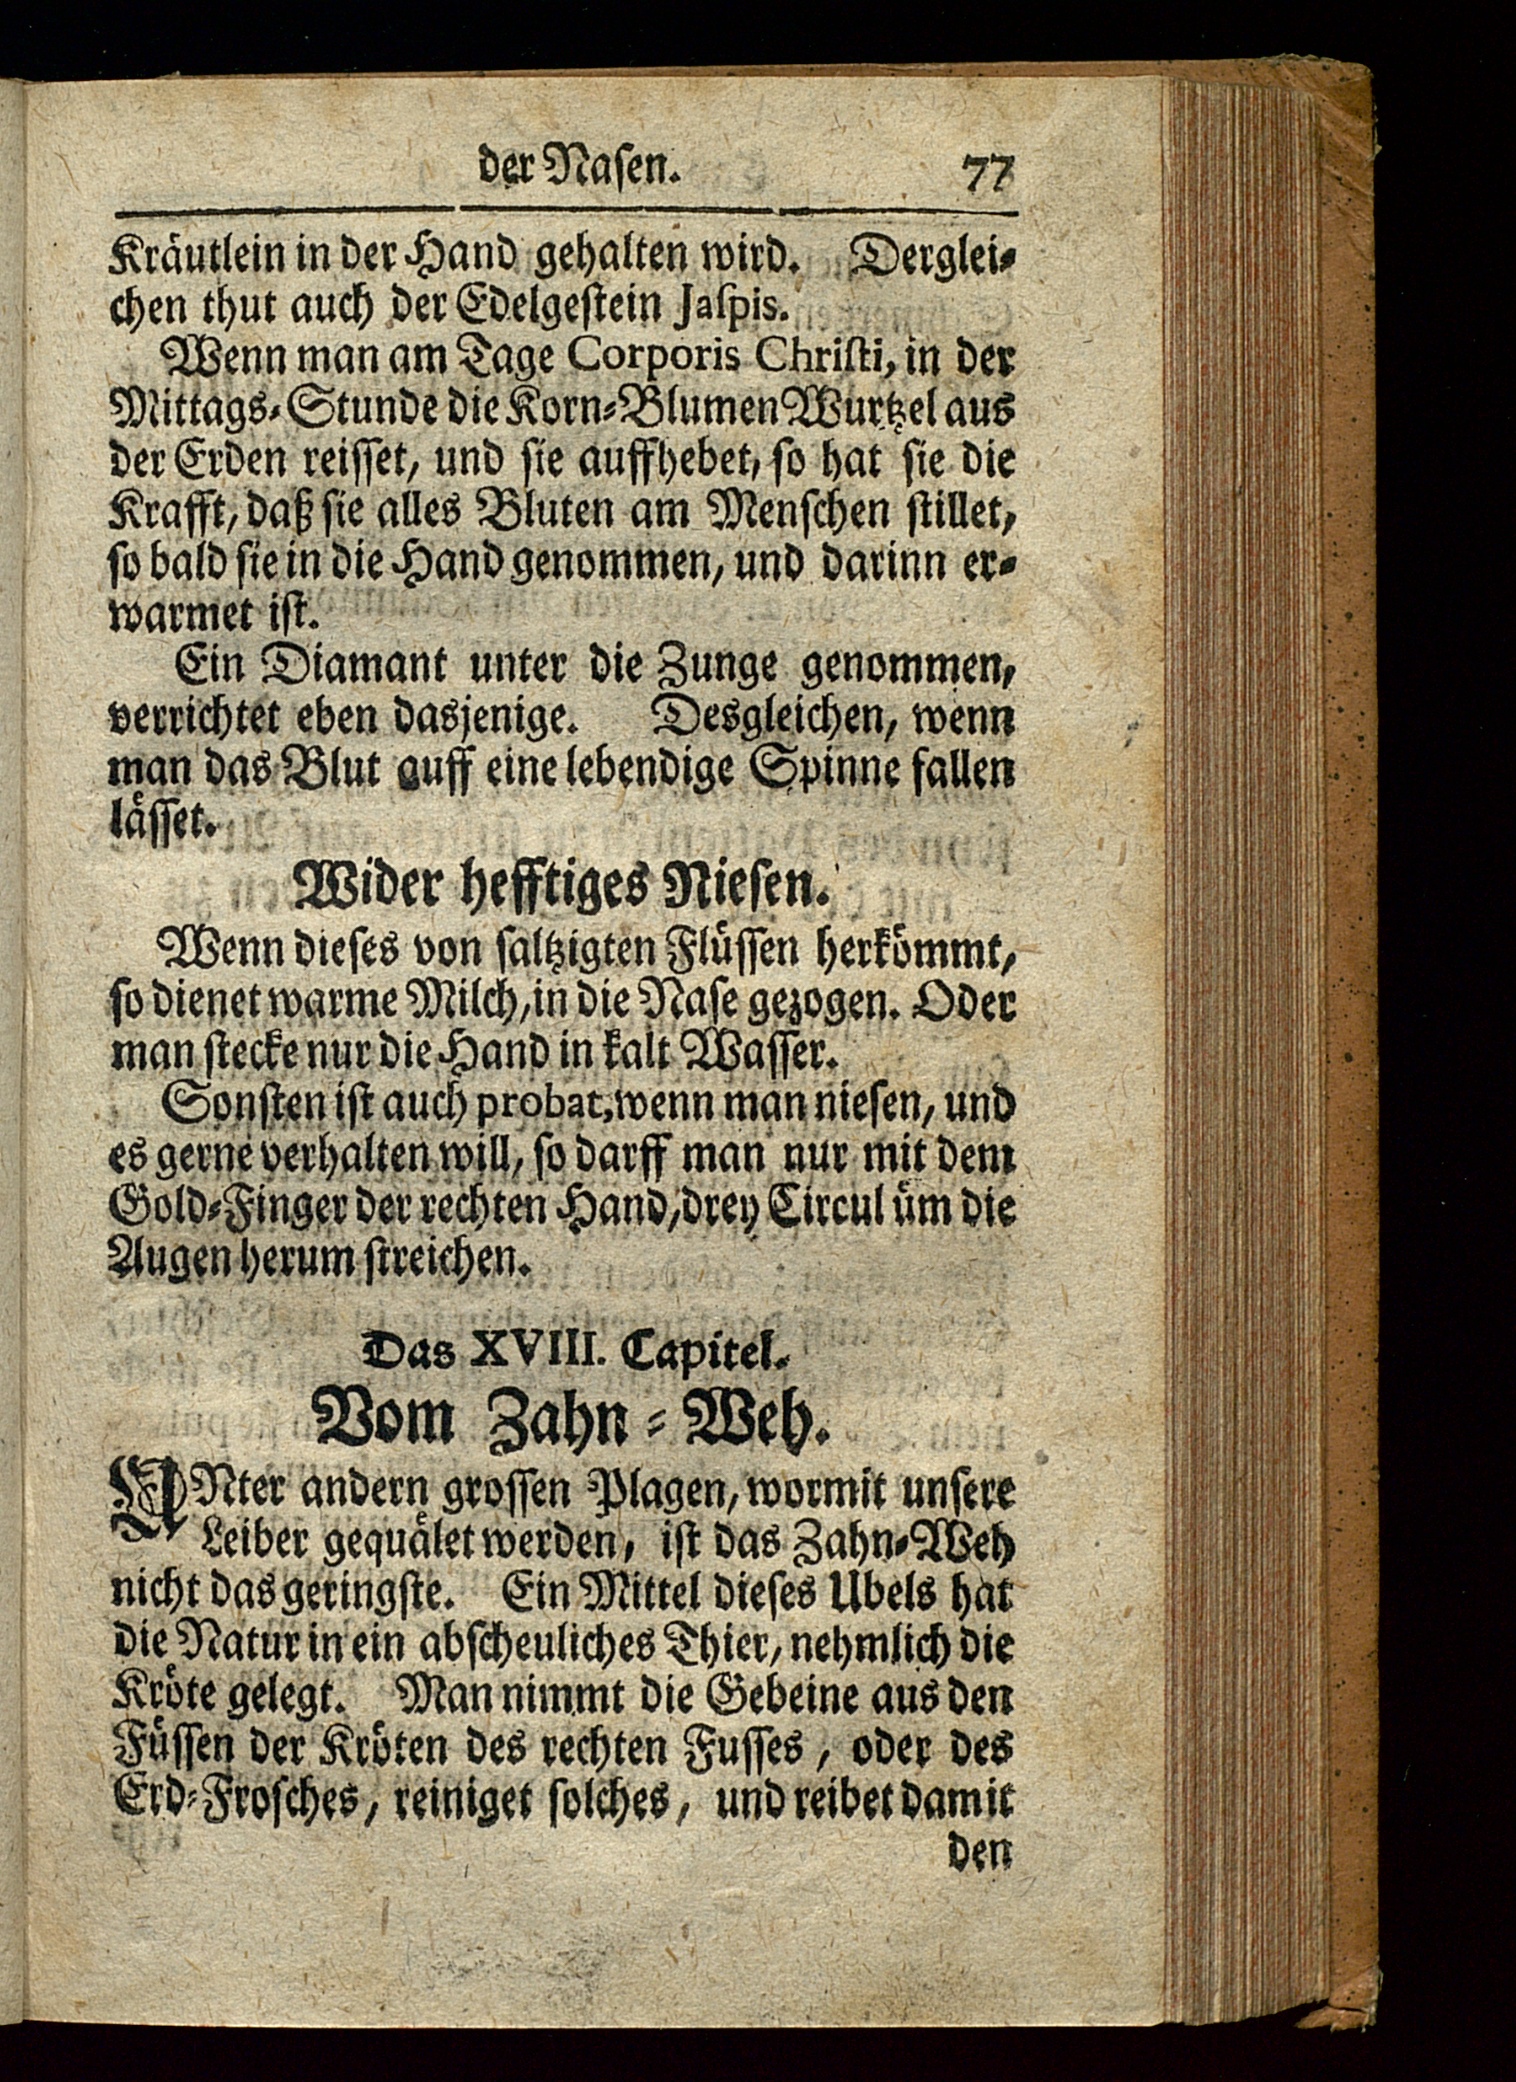 der Nasen. 77
Kräutlein in der Hand gehalten wird. Derglei-
chen thut auch der Edelgestein Jaspis.
Wenn man am Tage Corporis Christi, in der
Mittags-Stunde die Korn-Blumen Wurtzel aus
der Erden reisset, und sie auffhebet, so hat sie die
Krafft, daß sie alles Bluten am Menschen stillet,
so bald sie in die Hand genommen, und darinn er-
warmet ist.
Ein Diamant unter die Zunge genommen,
verrichtet eben dasjenige. Desgleichen, wenn
man das Blut auff eine lebendige Spinne fallen
lässet.
Wider hefftiges Niesen.
Wenn dieses von saltzigten Flüssen herkömmt,
so dienet warme Milch, in die Nase gezogen. Oder
man stecke nur die Hand in kalt Wasser.
Sonsten ist auch probat, wenn man niesen, und
es gerne verhalten will, so darff man nur mit dem
Gold-Finger der rechten Hand, drey Circul üm die
Augen herum streichen.
Das XVIII. Capitel.
Vom Zahn-Weh.
UNter andern grossen Plagen, wormit unsere
Leiber gequälet werden, ist das Zahn-Weh
nicht das geringste. Ein Mittel dieses Ubels hat
die Natur in ein abscheuliches Thier, nehmlich die
Kröte gelegt. Man nimmt die Gebeine aus den
Füssen der Kröten des rechten Fusses, oder des
Erd-Frosches, reiniget solches, und reibet damit
den